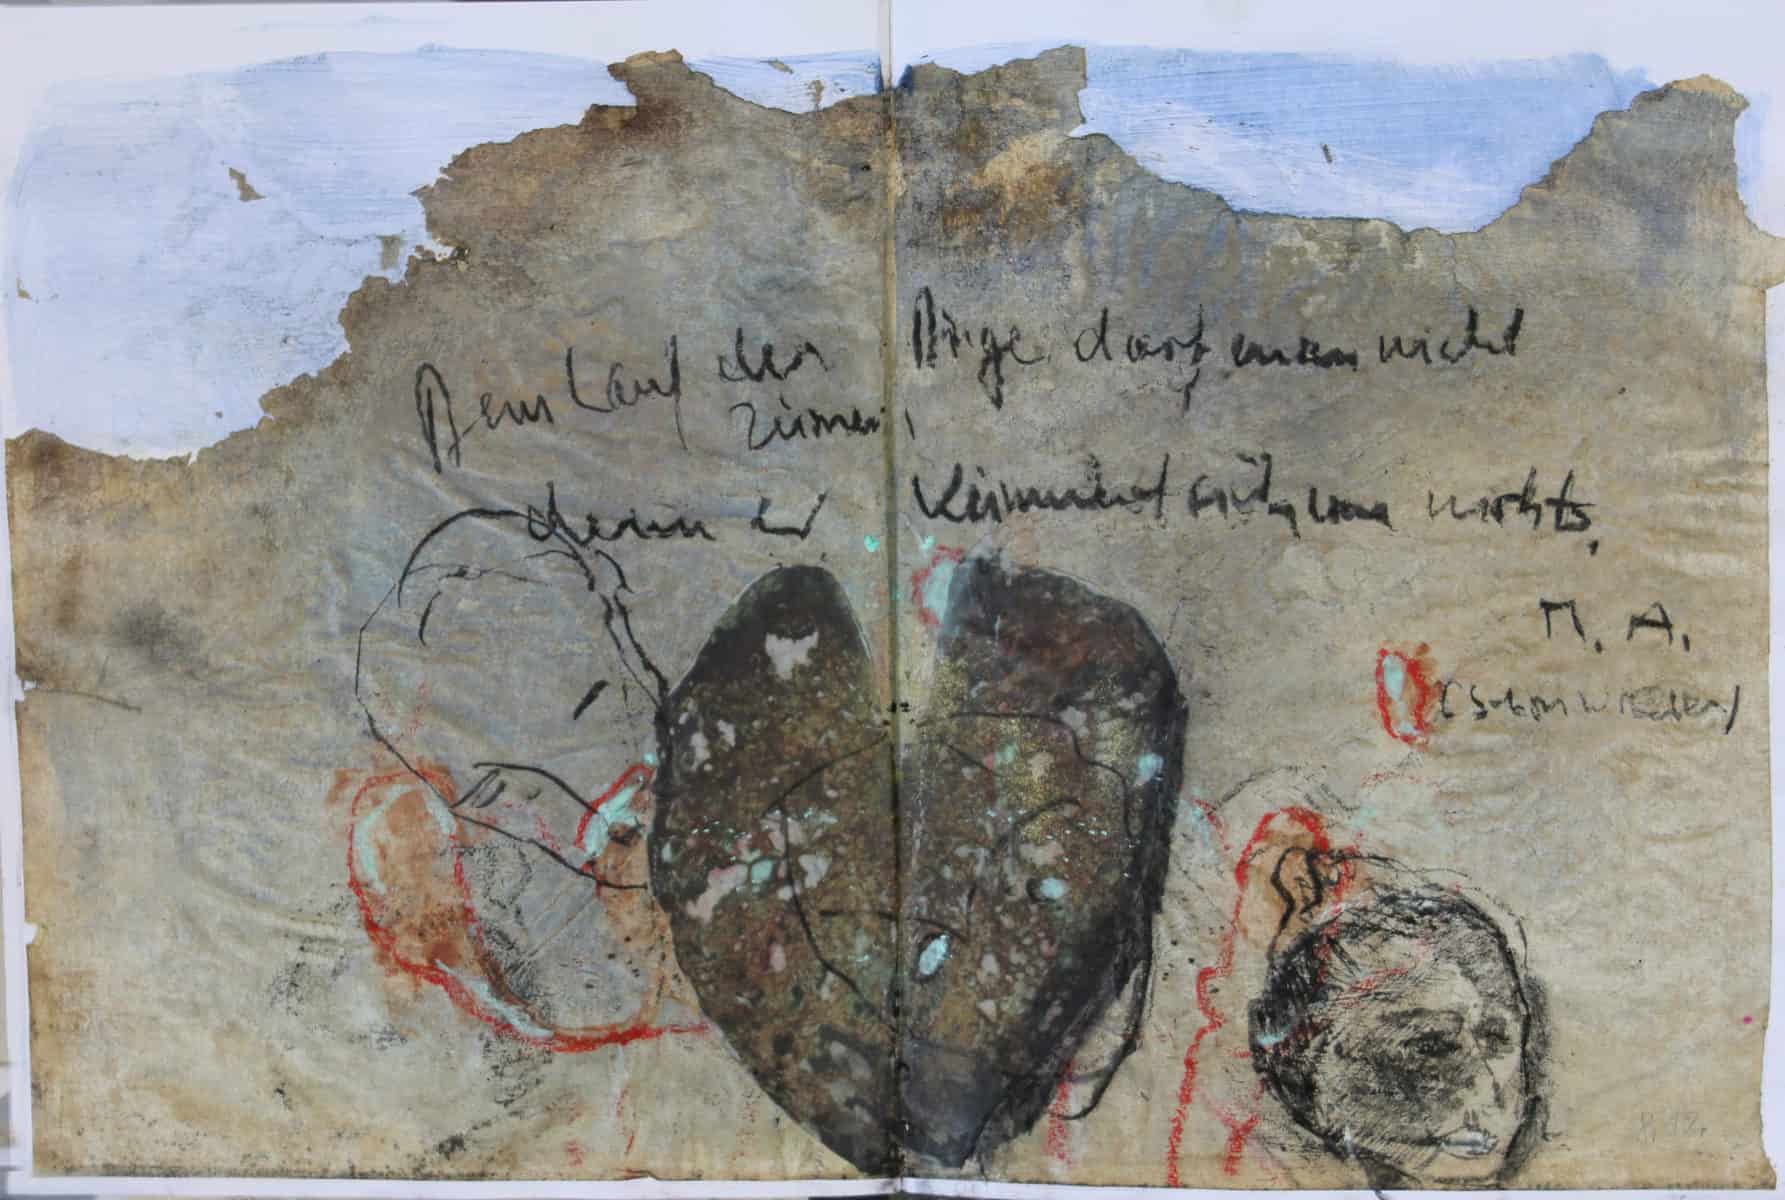 Dem Lauf der Dinge darf man nicht
zürnen,
denn er kümmert sich um nichts,
M. A.
8.12.